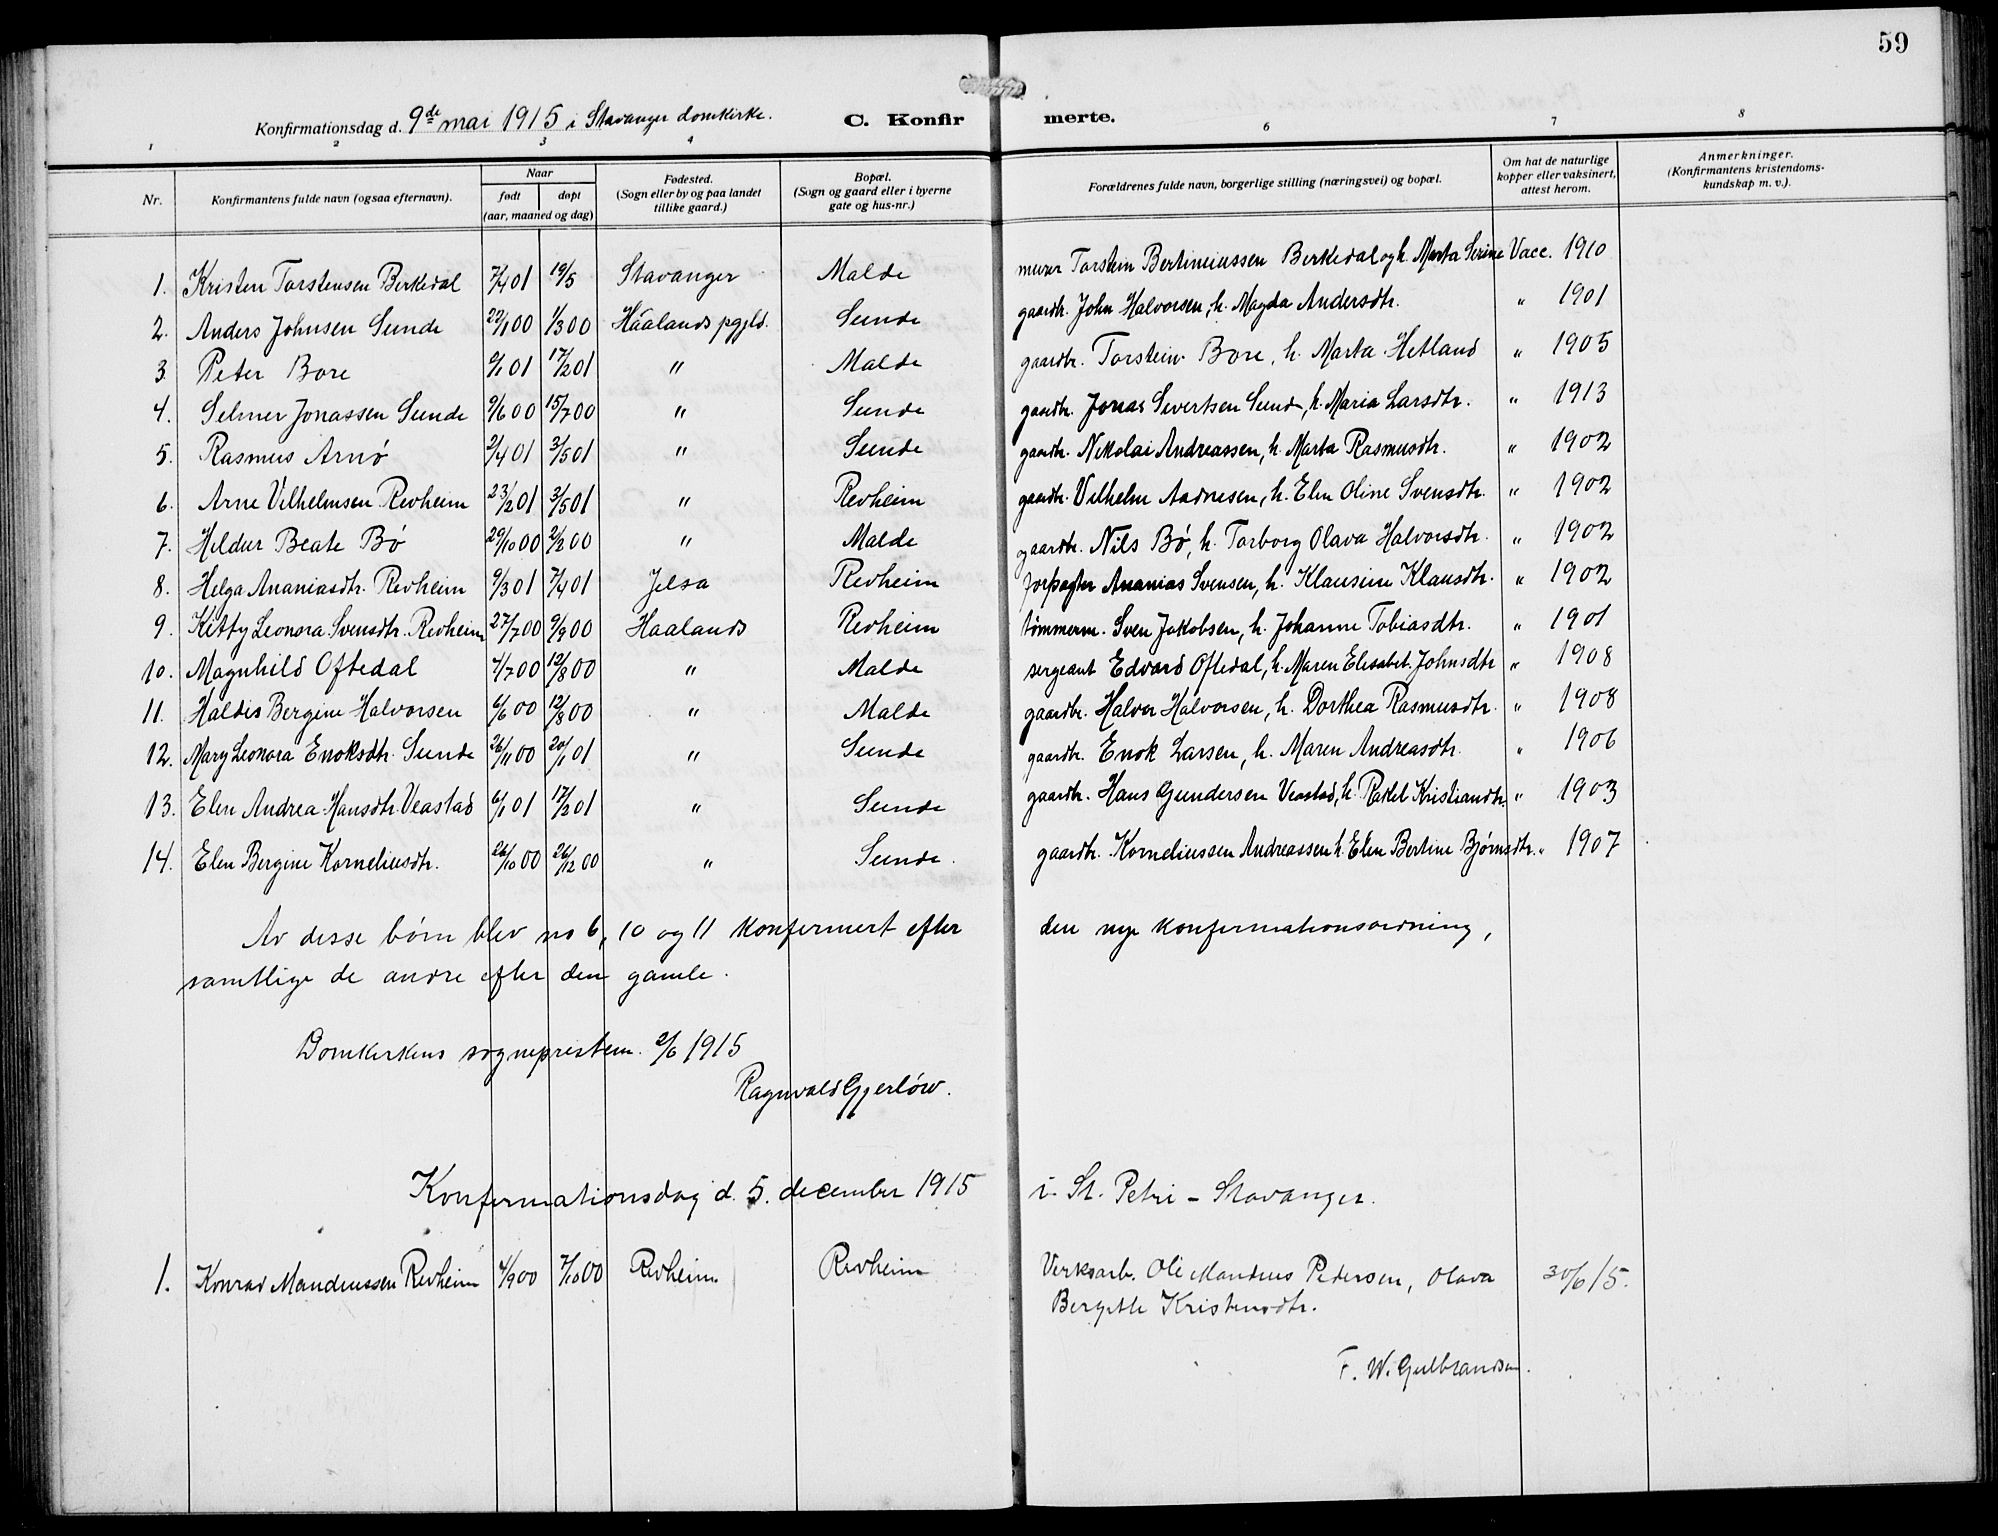 59
Konfirmationsdag d. 9de mai 1915 i Stavanger domkirke. C. Konfirmerte.
1 2 3 4 5 6 7 8
Nr. Konfirmantens fulde navn (ogsaa efternavn). Naar født døpt (aar, maaned og dag) Fødested. (Sogn eller by og paa landet tillike gaard.) Bopæl. (Sogn og gaard eller i byerne gate og hus-nr.) Forældrenes fulde navn, borgerlige stilling (næringsvei) og bopæl. Om hat de naturlige kopper eller vaksinert, attest herom. Anmerkninger. (Konfirmantens kristendomskundskap m. v.).
1. Kristen Torstensen Berkedal 7/4 01 19/5 Stavanger Malde murer Torstein Bertineiussen Berkedal og h. Marta Serine Vacc. 1910
2. Anders Johnsen Sunde 22/1 00 1/3 00 Haalands pgjld. Sunde gaardbr. John Halvorsen, h. Magda Andersdtr. " 1901
3. Peter Bore 9/1 01 17/2 01 " Malde gaardbr. Torstein Bore, h. Marta Hetland " 1905
4. Selmer Jonassen Sunde 9/6 00 15/7 00 " Sunde gaardbr. Jonas Sivertsen Sunde, h. Maria Larsdtr. " 1913
5. Rasmus Arnø 2/4 01 3/5 01 " Sunde gaardbr. Nikolai Andreassen, h. Marta Rasmusdtr. " 1902
6. Arne Vilhelmsen Revheim 23/2 01 3/5 01 " Revheim gaardbr. Vilhelm Aadnesen, h. Elen Oline Svensdtr. " 1902
7. Hildur Beate Bø 29/10 00 2/2 00 " Malde gaardbr. Nils Bø, h. Torborg Olava Halvorsdtr. " 1902
8. Helga Ananiasdtr. Revheim 9/3 01 7/4 01 Jelsa Revheim forpagter Ananias Svensen, h. Klausine Klausdtr. " 1902
9. Kitty Leonora Svensdtr. Revheim 27/7 00 9/9 00 Haalands Revheim tømmerm. Sven Jakobsen, h. Johanne Tobiasdtr. " 1901
10. Magnhild Oftedal 4/7 00 12/8 00 " Malde sergeant Edvard Oftedal, h. Maren Elisabet Johnsdtr " 1908
11. Haldis Bergine Halvorsen 6/6 00 12/8 00 " Malde gaardbr. Halvor Halvorsen, h. Dorthea Rasmusdtr. " 1908
12. Mary Leonora Enoksdtr. Sunde 26/11 00 20/1 01 " Sunde gaardbr. Enok Larsen, h. Maren Andreasdtr. " 1906
13. Elen Andrea Hansdtr. Veastad 6/1 01 17/2 01 " Sunde gaardbr. Hans Gundersen Veastad, h. Rakel Kristiandtr. " 1903
14. Elen Bergine Korneliusdtr. 26/10 00 26/12 00 " Sunde. gaardbr. Korneliussen Andreassen h. Elen Bertine Bjørnsdtr. " 1907
Av disse børn blev no 6, 10 og 11 konfirmert efter den nye konfirmationsordning,
samtlige de andre efter den gamle.
Domkirkens sogneprestem. 2/6 1915
Ragnvald Gjerløw.
Konfirmationsdag d. 5. december 1915 i St. Petri - Stavanger.
1. Konrad Mandiussen Revheim 4/9 00 7/10 00 Revheim Revheim Verksarb. Ole Mandius Pedersen, Olava 30/6 15.
Bergitte Kristensdtr.
F. W. Gulbrandsen.